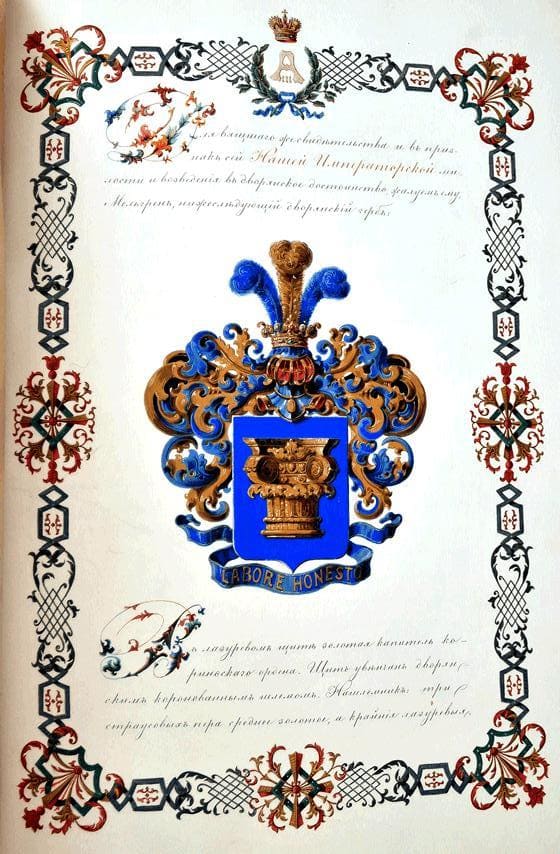 А III
Для вящшаго же свидѣтельства и въ приз-
накъ сей Нашей Императорской ми-
лости и возведенія въ дворянское достоинство, жалуемъ ему,
Мельгрень, нижеслѣдующій дворянскій гербъ:
LABORE HONESTO
Въ лазуревомъ щитѣ золотая капитель ко-
ринѳскаго ордена. Щитъ увѣнчанъ дворян-
скимъ коронованнымъ шлемомъ. Нашлемникъ: три
страусовыхъ пера среднее золотое, а крайнія лазуревыя,